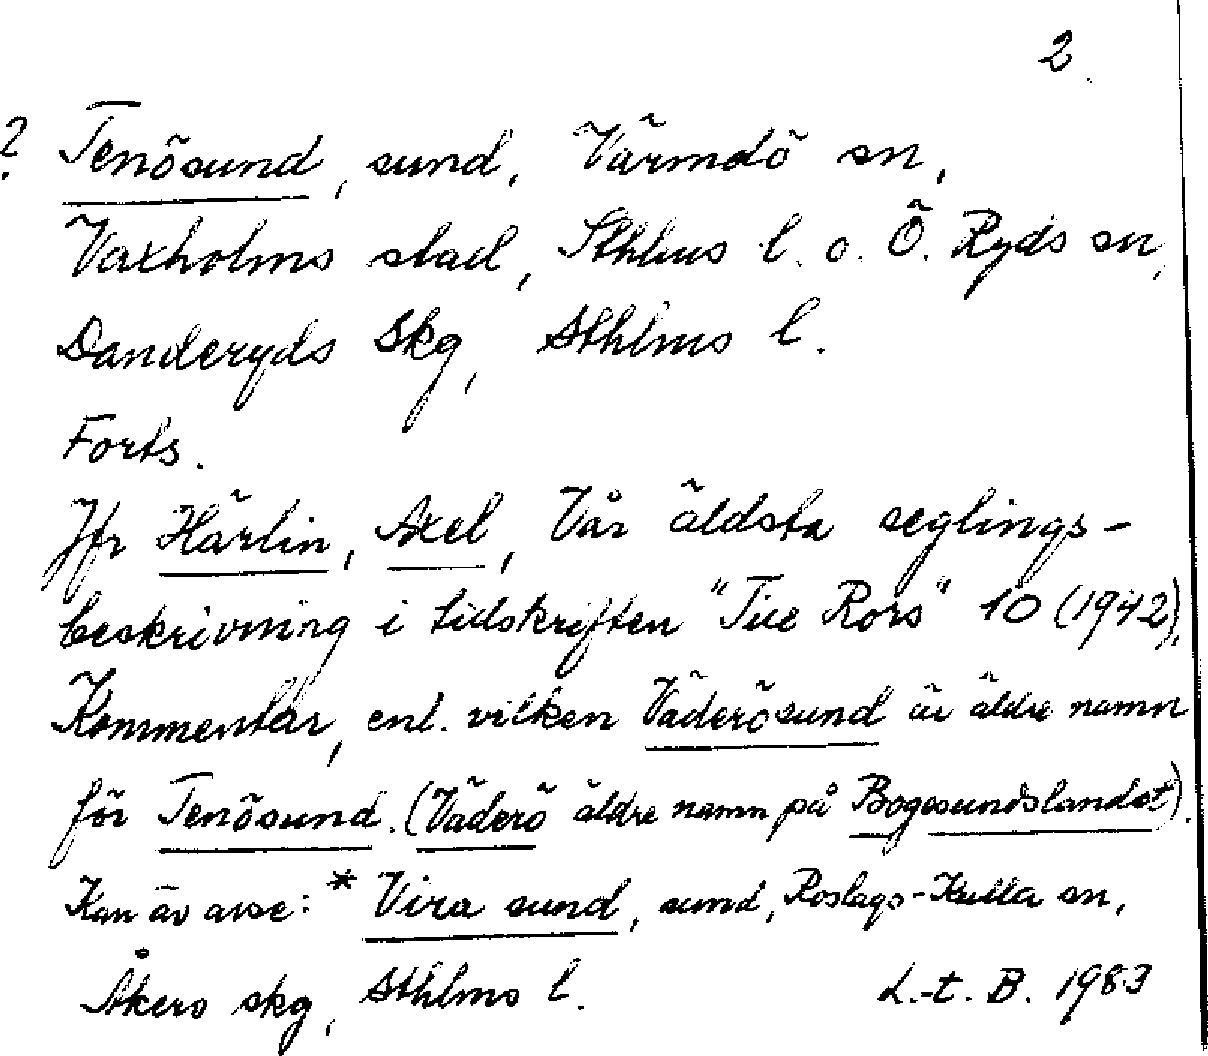 2.
? Tenösund, sund, Värmdö sn,
Vaxholms stad, Sthlms l. o. Ö. Ryds sn,
Danderyds Skg, Sthlms l.
Forts.
Jfr Härlin, Axel, Vår äldsta seglings-
beskrivning i tidskriften "Till Rors" 10 (1942).
Kommentar, enl. vilken Väderösund är äldre namn
för Tenösund. (Väderö äldre namn på Bogesundslandet).
Kan äv avse: * Vira sund, sund, Roslags-Kulla sn,
Åkers skg, Sthlms l. L.-t. B. 1983